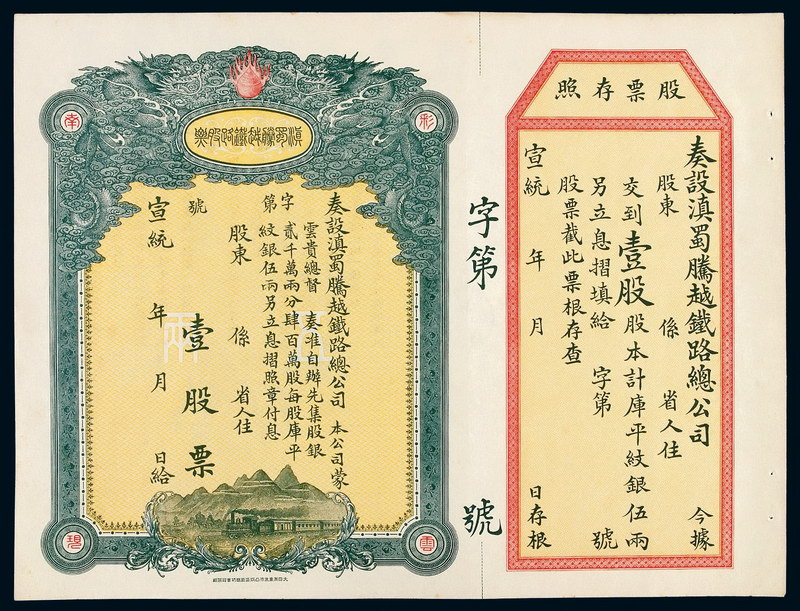 股票存照
奏設滇蜀騰越鐵路總公司 今據
股東 係 省人住
交到壹股股本計庫平紋銀伍兩
另立息摺填給 字第 號
股票截此票根存查
宣統 年 月 日存根
字第 號
滇蜀騰越鐵路股票
奏設滇蜀騰越鐵路總公司 本公司蒙
雲貴總督 奏准自辦先集股銀
貳千萬兩分肆百萬股每股庫平
紋銀伍兩另立息摺照章付息
字第 號
股東 係 省人住
壹股票
宣統 年 月 日給
彩
南
雲
現
伍
兩